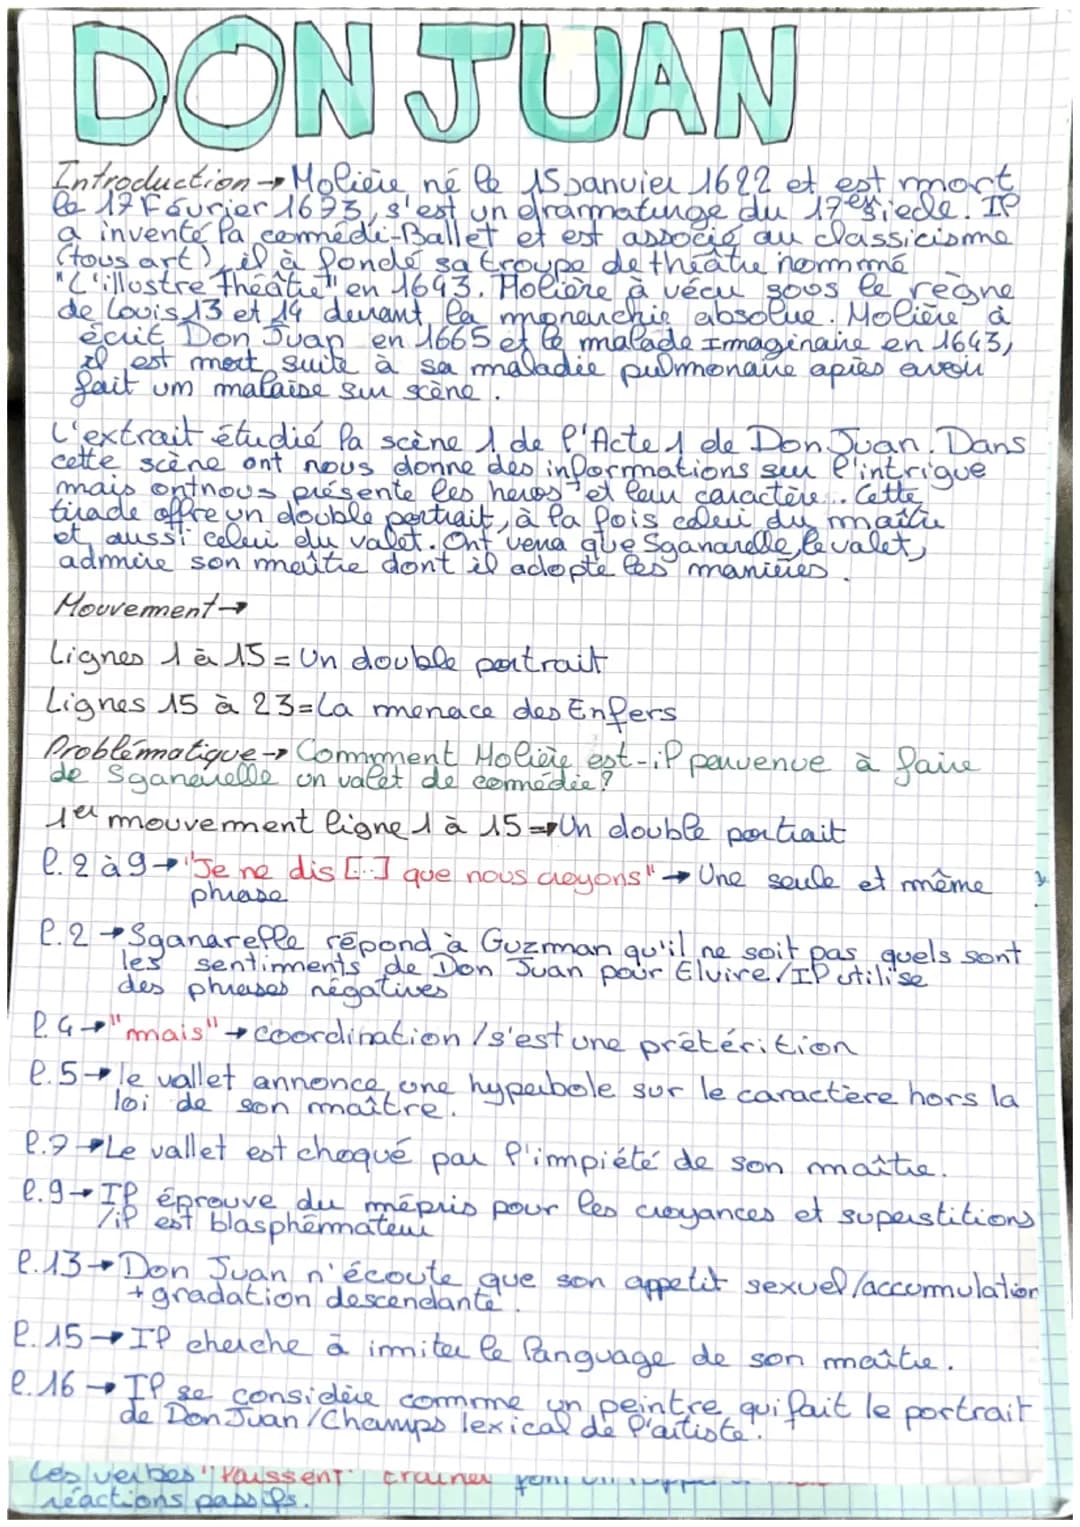 DON JUAN
Introduction → Molière né le 15 janvier 1622 et est mort
le 17 Février 1673, s'est un dramaturge du 17e siecle. Il
a inventé la comédi-Ballet et est associé au classicisme
(tous art), il à fondé sa troupe de théâtre nommé
"L'illustre théâtre" en 1643. Molière à vécu sous le règne
de Louis 13 et 14 devant la monarchie absolue. Molière à
écrit Don Juan en 1665 et le malade Imaginaire en 1643,
il est mort suite à sa maladie pulmonaire après avoir
fait um malaise sur scène.
L'extrait étudié la scène 1 de l'Acte 1 de Don Juan. Dans
cette scène ont nous donne des informations sur l'intrigue
mais ont nous présente les heros et leur caractère.. Cette
tirade offre un double portrait, à la fois celui du maître
et aussi celui du valet. Ont vera que Sganarelle, le valet,
admire son maître dont il adopte les manières.
Mouvement →
Lignes 1 à 15 = Un double portrait
Lignes 15 à 23 = La menace des Enfers
Problématique → Comment Molière est-il parvenue à faire
de Sganarelle un valet de comédie?
1er mouvement ligne 1 à 15 ⇒ Un double portrait
l. 2 à 9 → "Je ne dis [...] que nous croyons" → Une seule et même
phrase
l.2 → Sganarelle répond à Guzman qu'il ne soit pas quels sont
les sentiments de Don Juan pour Elvire / Il utilise
des phrases négatives
l.4 → "mais" → coordination / s'est une prétérition
l.5 → le vallet annonce une hyperbole sur le caractère hors la
loi de son maître.
l.7 → Le vallet est choqué par l'impiété de son maître.
l.9 → Il éprouve du mépris pour les croyances et superstitions
/ il est blasphémateur
l.13 → Don Juan n'écoute que son appetit sexuel / accumulation
+ gradation descendante.
l.15 → Il cherche à imiter le language de son maître.
l.16 → Il se considère comme un peintre qui fait le portrait
de Don Juan / Champs lexical de l'artiste.
Les verbes "
réactions passifs.